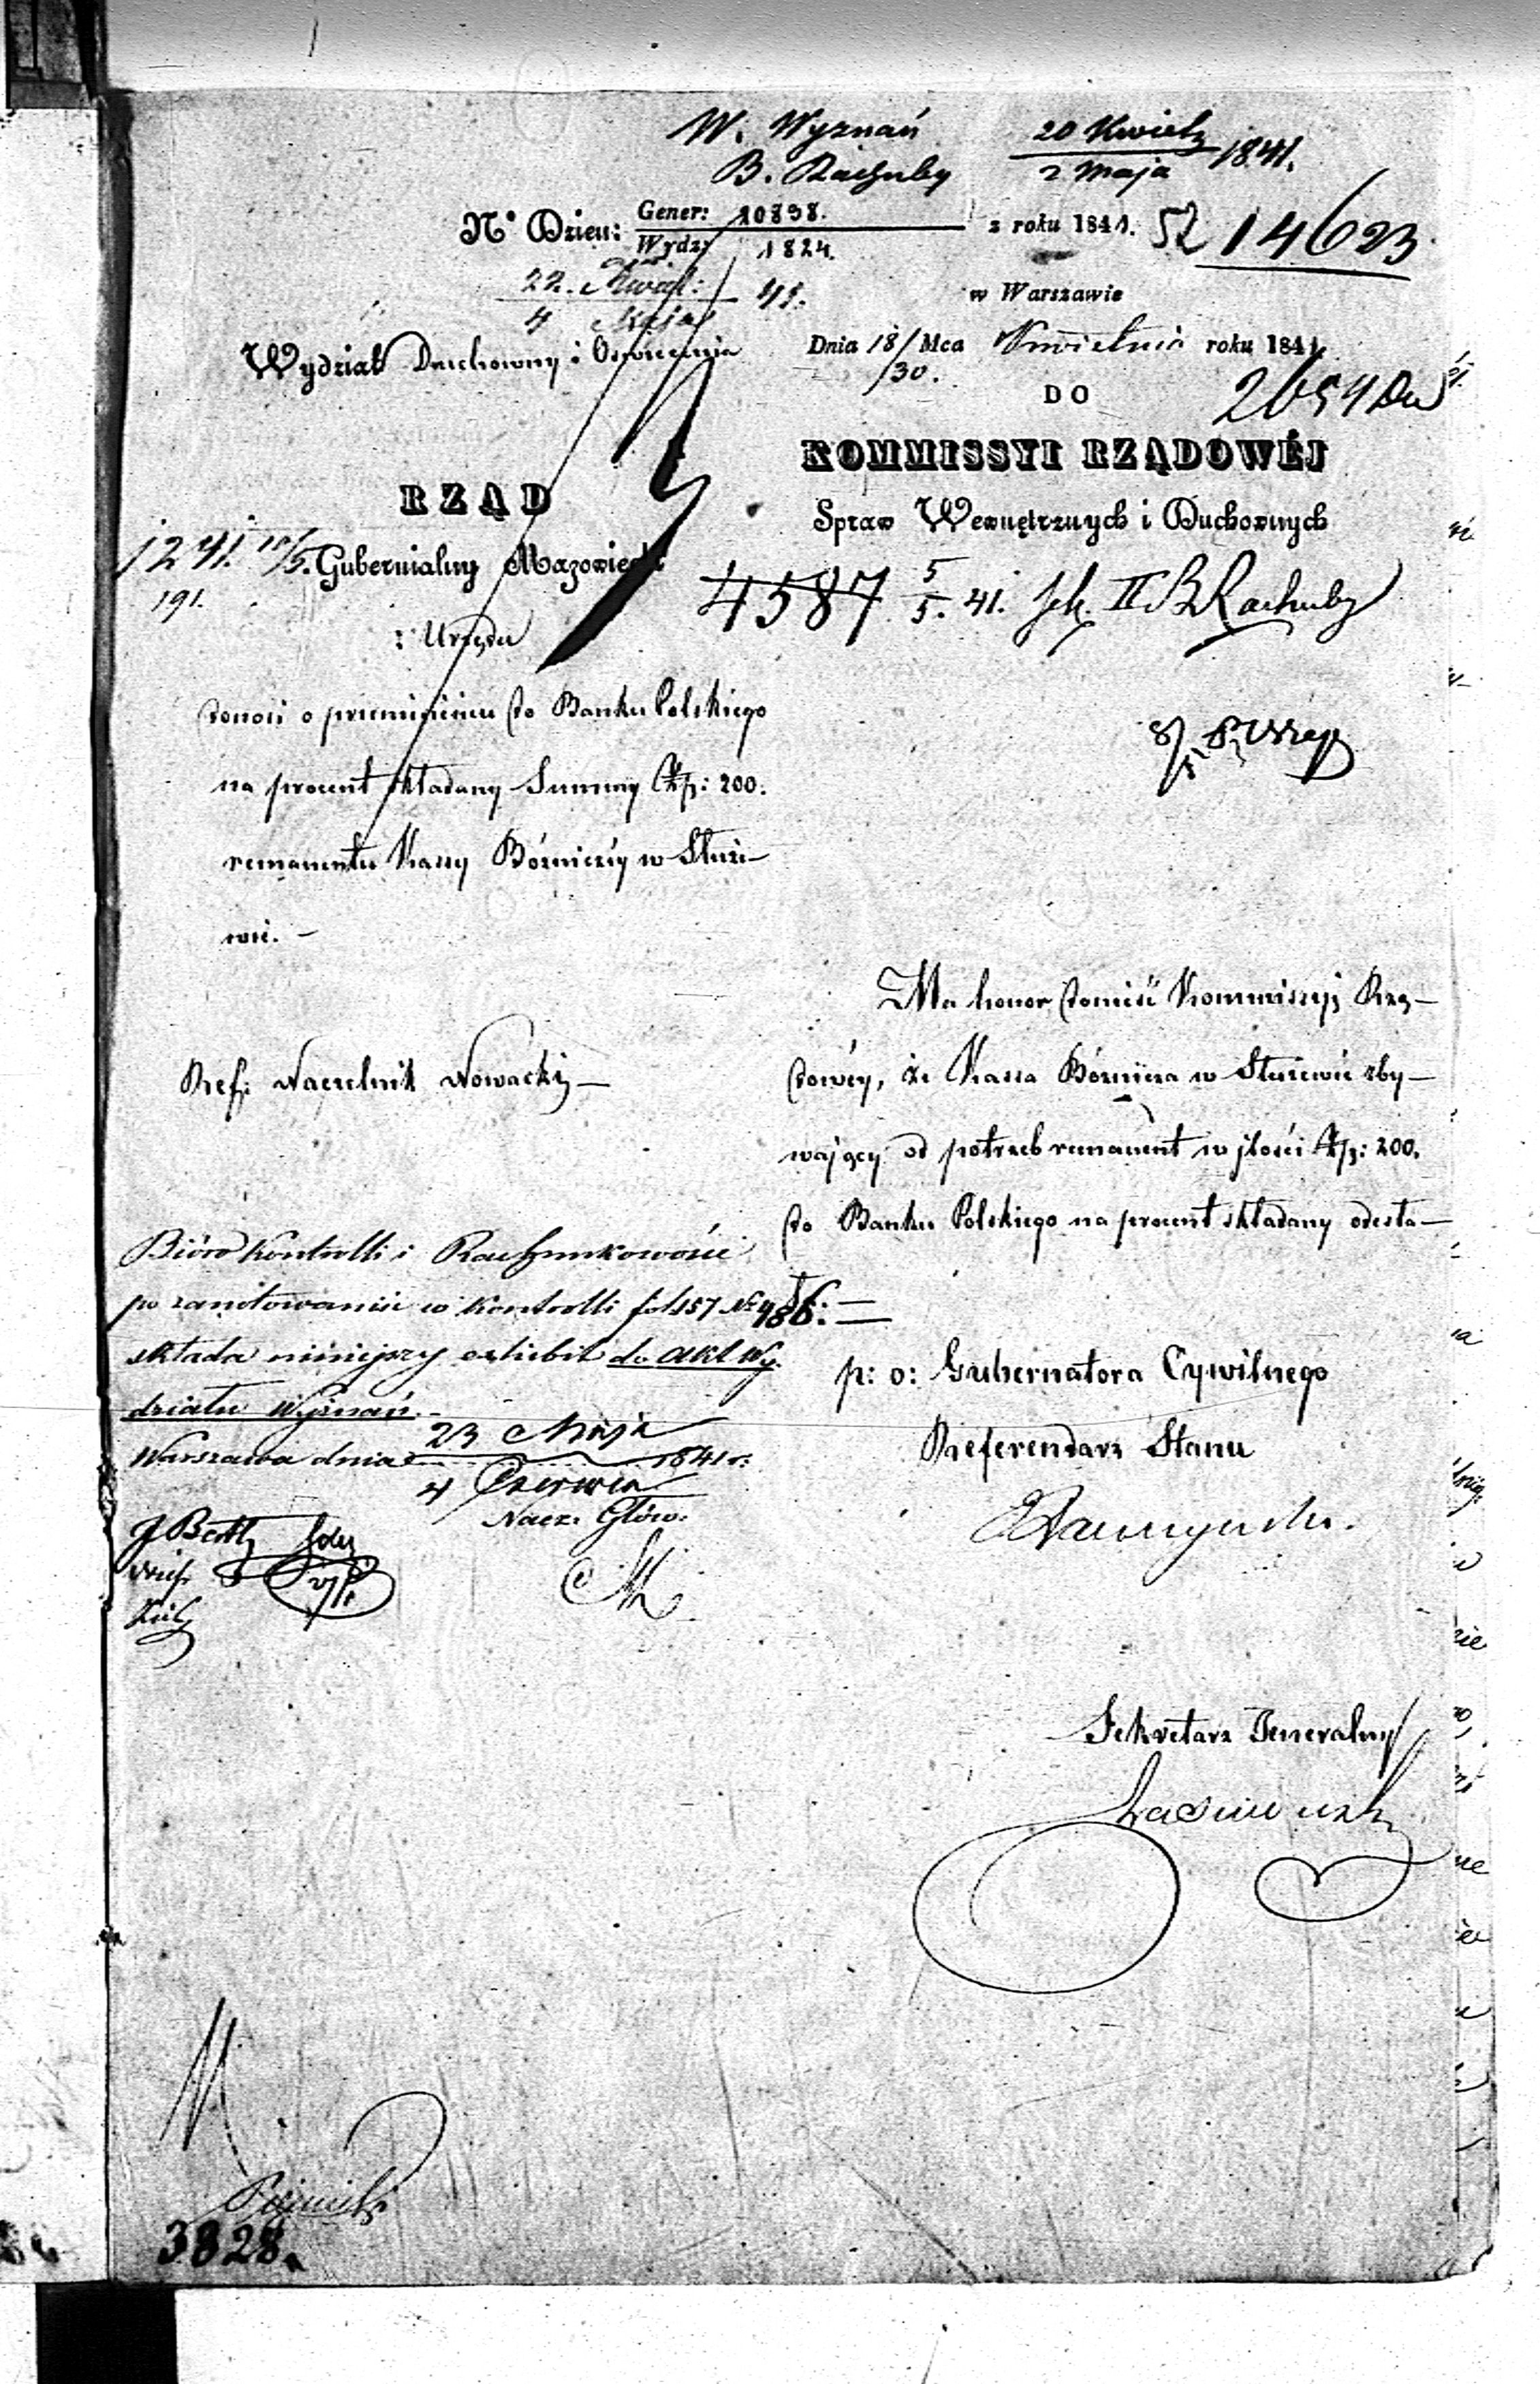 W. Wyznań
B. Rachuby
20 Kwietn
2 Maja 1841.
Nº Dzien: Gener: 10898. z roku 1841. 52 14623
Wydz: 1824.
22. Kwiet: 41.
4 Maja
w Warszawie
Wydział Duchowny i Oświecenia
Dnia 18/30. Mca Kwietnia roku 1841.
DO
KOMMISSYI RZĄDOWÉJ
RZĄD
Spraw Wewnętrznych i Duchownych
Gubernialny Mazowiecki
191.
4587 5/5. 41. II B Rachuby
z Urzędu
donosi o przeniesieniu do Banku Polskiego
na procent składany Summy złp: 200.
remanentu Kassy Bóżniczéy w Służe-
wie. -
Ma honor donieść Kommissyi Rzą-
dowéy, że Kassa Bóżnicza w Służewie zby-
wający od potrzeb remanent w jlości złp: 200.
do Banku Polskiego na procent składany odesła-
ła: -
Ref: Naczelnik Nowacki -
Bióro Kontrolli i Rachunkowości
po zanotowaniu w Kontrolli fol 157 Nr 486
składa niniejszy exhibit do akt Wy-
działu Wyznań. -
Warszawa dnia 23 Maja 1841 r:
4 Czerwca
Nacz: Głów:
p: o: Gubernatora Cywilnego
Referendarz Stanu
Sekretarz Jeneralny
3828.